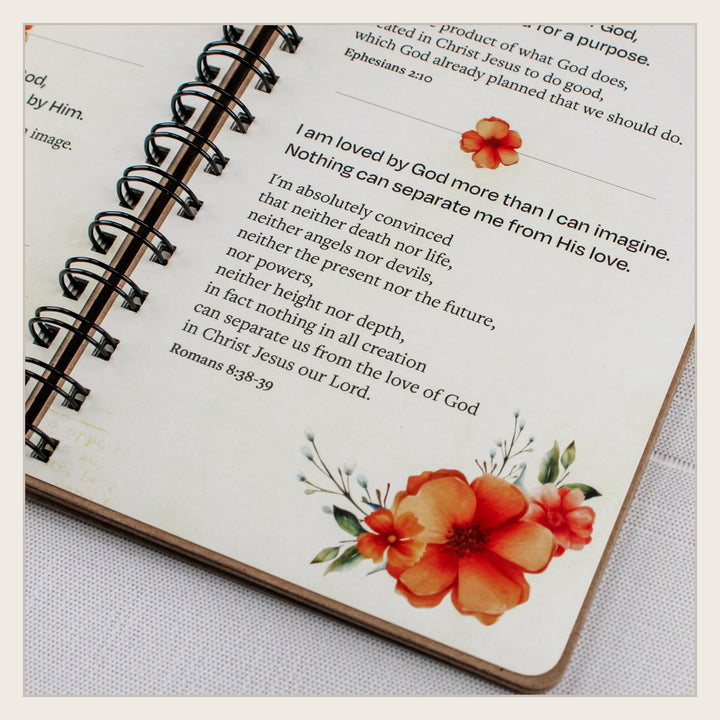 God,
by Him.
image.
God,
for a purpose.
product of what God does,
in Christ Jesus to do good,
which God already planned that we should do.
Ephesians 2:10
I am loved by God more than I can imagine.
Nothing can separate me from His love.
I'm absolutely convinced
that neither death nor life,
neither angels nor devils,
neither the present nor the future,
nor powers,
neither height nor depth,
in fact nothing in all creation
can separate us from the love of God
in Christ Jesus our Lord.
Romans 8:38-39